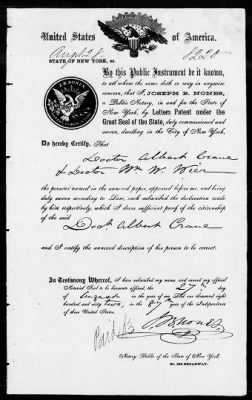 United States of America.
STATE OF NEW YORK, ss.
By this Public Instrument be it known,
to all whom the same doth or may in anywise
concern, that I, JOSEPH B. NONES,
a Public Notary, in and for the State of
New York, by Letters Patent under the
Great Seal of the State, duly commissioned and
sworn, dwelling in the City of New York,
Do hereby Certify, That
Doctor Albert Crane
& Doctor Wm W. Weir
the persons named in the annexed paper, appeared before me, and being
duly sworn according to Law, each subscribed the declaration made
by him respectively, which I deem sufficient proof of the citizenship
of the said
Doct Albert Crane
and I certify the annexed description of his person to be correct.
In Testimony Whereof, I have subscribed my name and caused my official
Notarial Seal to be hereunto affixed the 27th day
of August in the year of our Lord one thousand eight hundred
and sixty two, in 87th year of the Independence
of these United States.
Paid
J B Nones
Notary Public of the State of New York
BROADWAY.